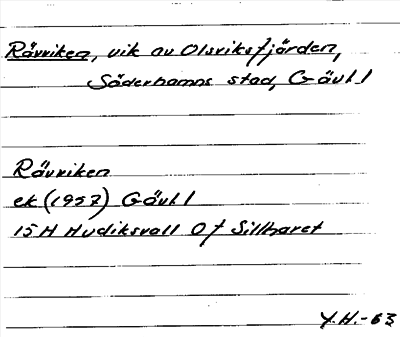 Rävviken, vik av Olsviksfjärden,
Söderhamns stad, Gävl l
Rävviken
ek (1957) Gävl l
15H Hudiksvall 0f Sillharet
Y.H.-63